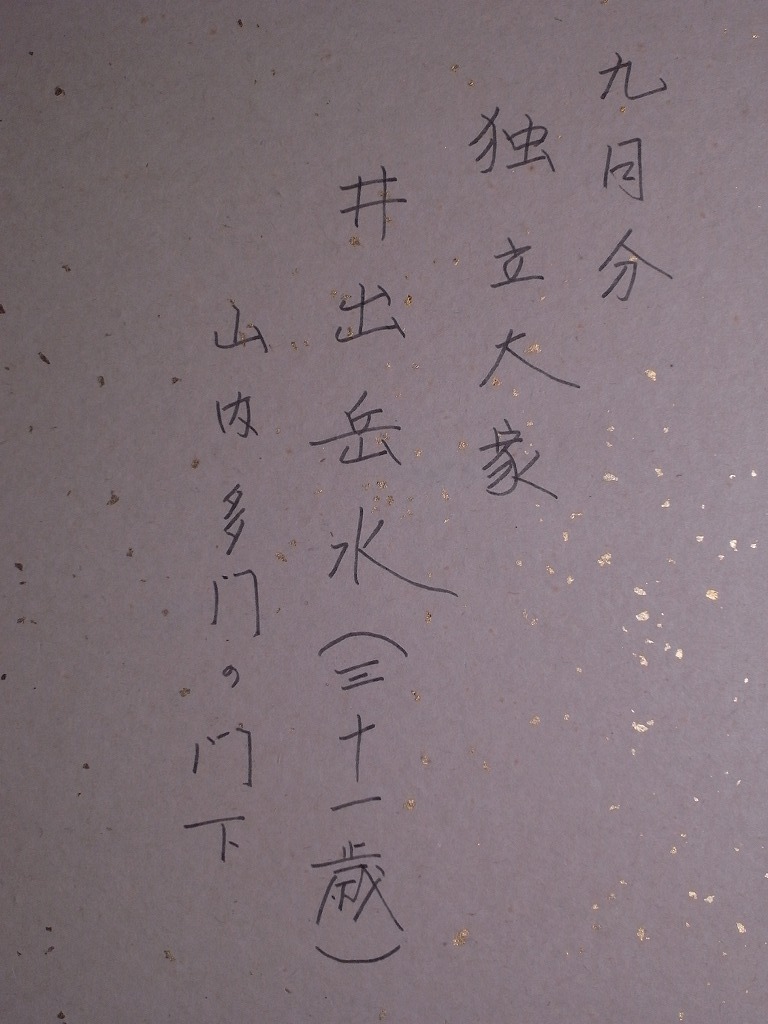 九日分
独立大家
井出岳水(三十一歳)
山内多門の門下